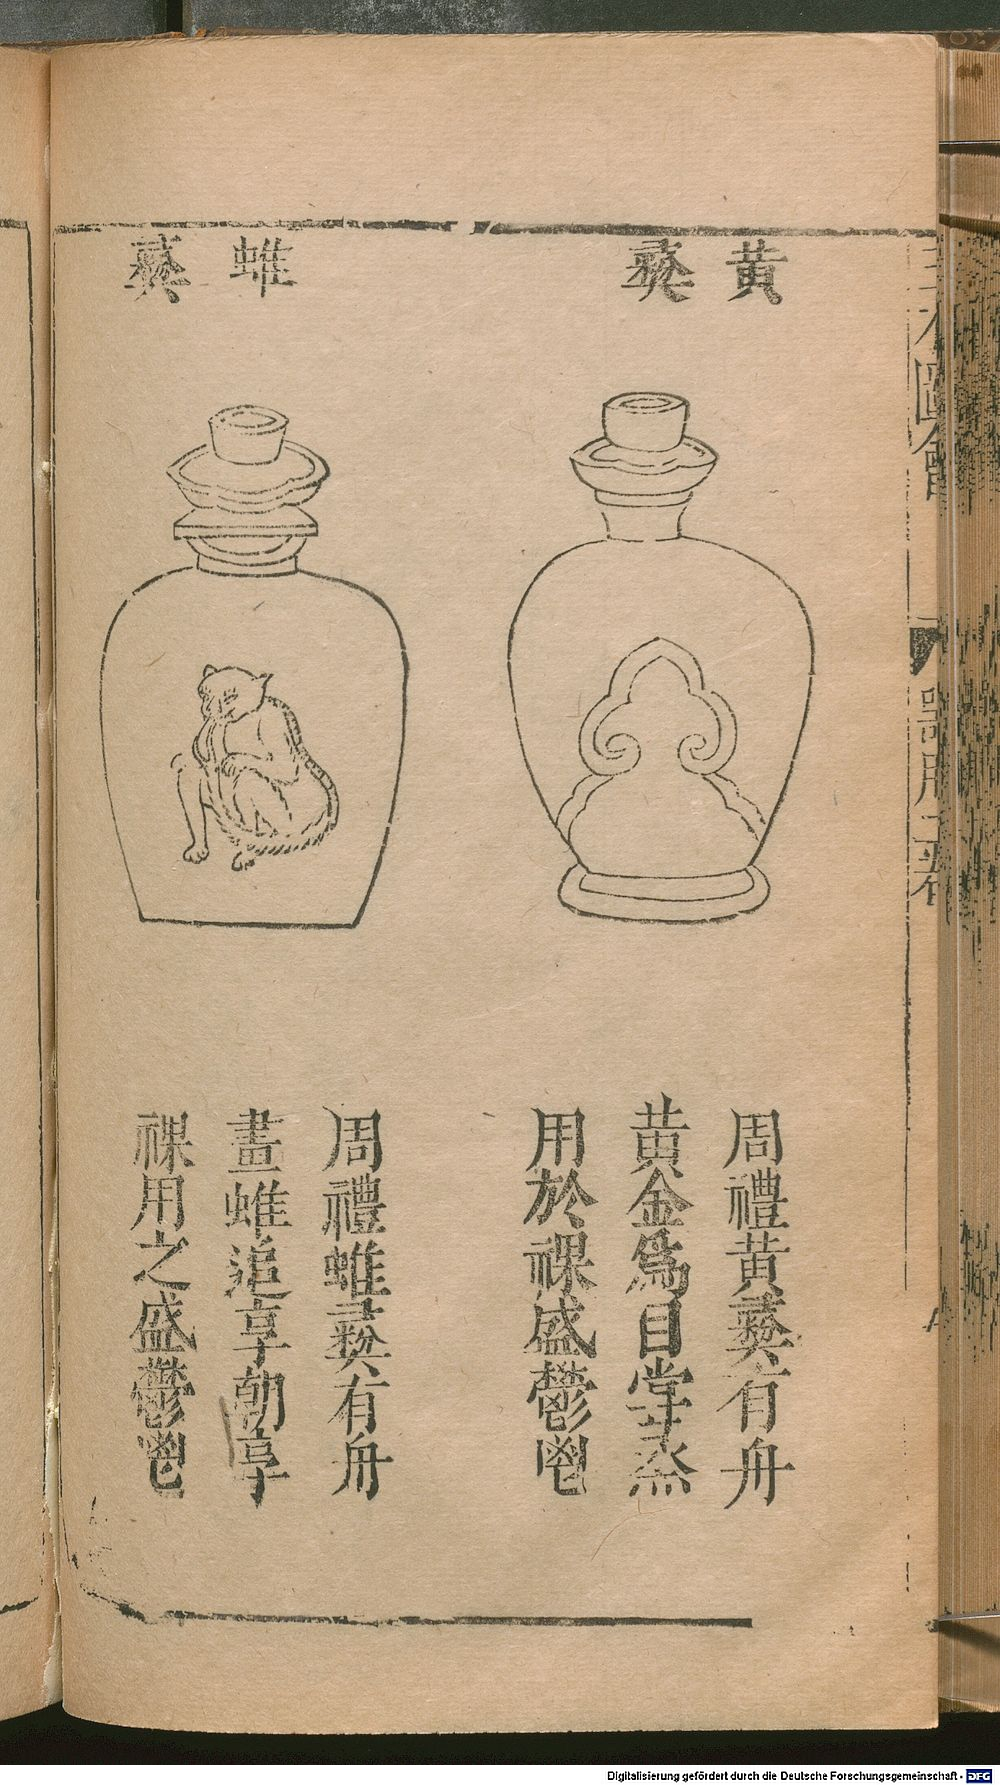 三才圖會
器用一卷
黄彛
周禮黄彛有舟
黄金爲目甞烝
用於祼盛鬱鬯
蜼彛
周禮蜼彛有舟
畫蜼追享朝享
祼用之盛鬱鬯
Digitalisierung gefördert durch die Deutsche Forschungsgemeinschaft - DFG